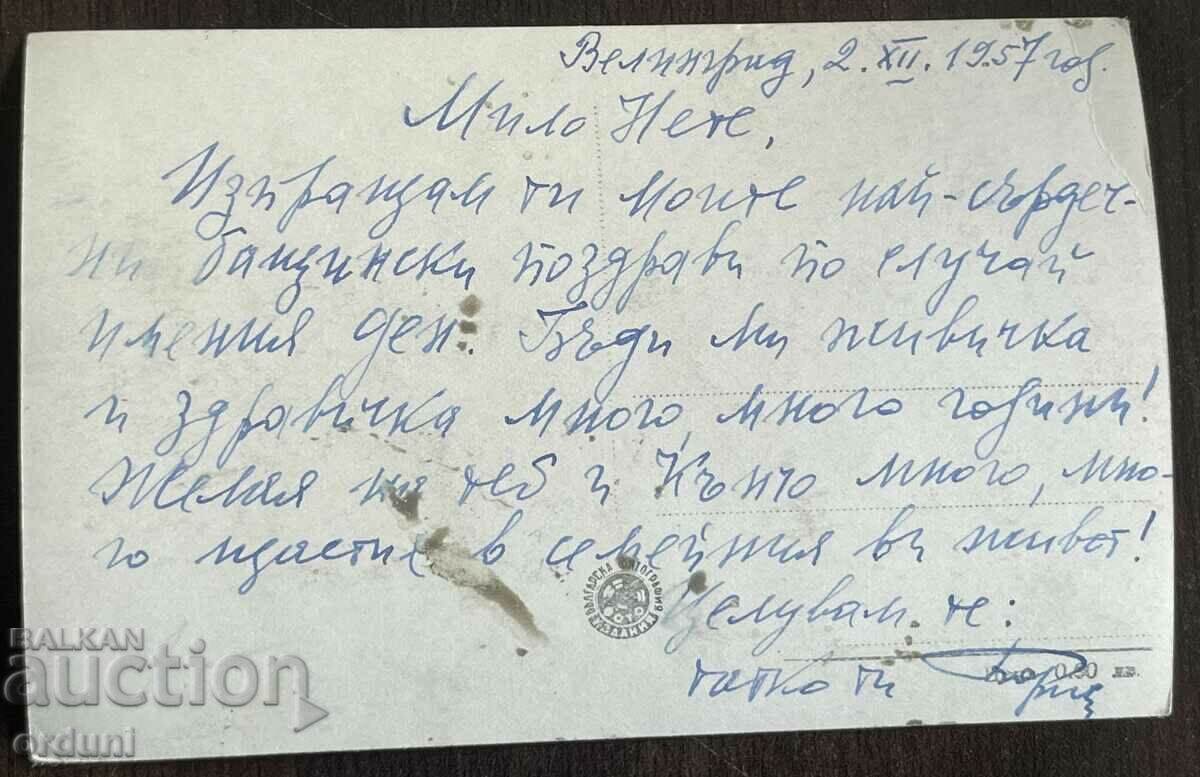 Велинград, 2. XII. 1957 год.
Мило Нете,
Изпращам ти моите най-сърдеч-
ни бащински поздрави по случай
имения ден. Бъди ми живичка
и здравичка много, много години!
Желая на теб и Кънчо много, мно-
го щастие в семейния ви живот!
БЪЛГАРСКА ФОТОГРАФИЯ
Целувам те:
татко ти
0.60 лв.
BALKAN
auction
orduni